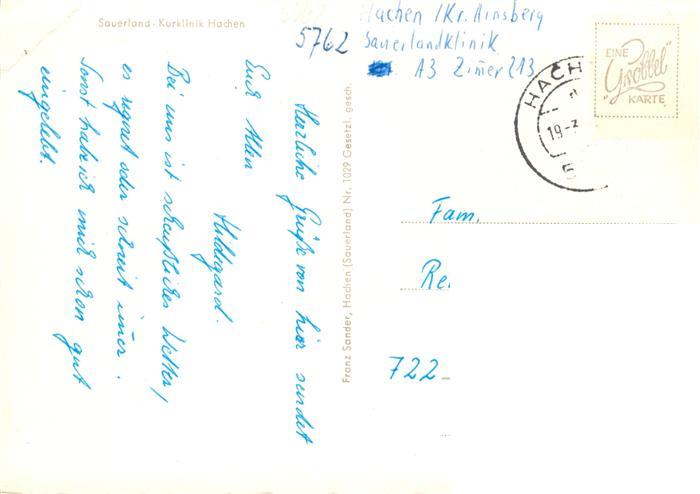 Sauerland - Kurklinik Hachen
5762 Hachen / Kr. Arnsberg
Sauerlandklinik
A3 Zimer 213
EINE
"Groß­bel"
KARTE
HACH
19-
5
Herzliche Grüße von hier sendet
Euch Allen
Hildegard.
Bei uns ist scheußliches Wetter,
es regnet oder schneit imer.
Sonst habe ich mich schon gut
eingelebt.
Franz Sander, Hachen (Sauerland) Nr. 1029 Gesetzl. gesch.
Fam.
Re.
722